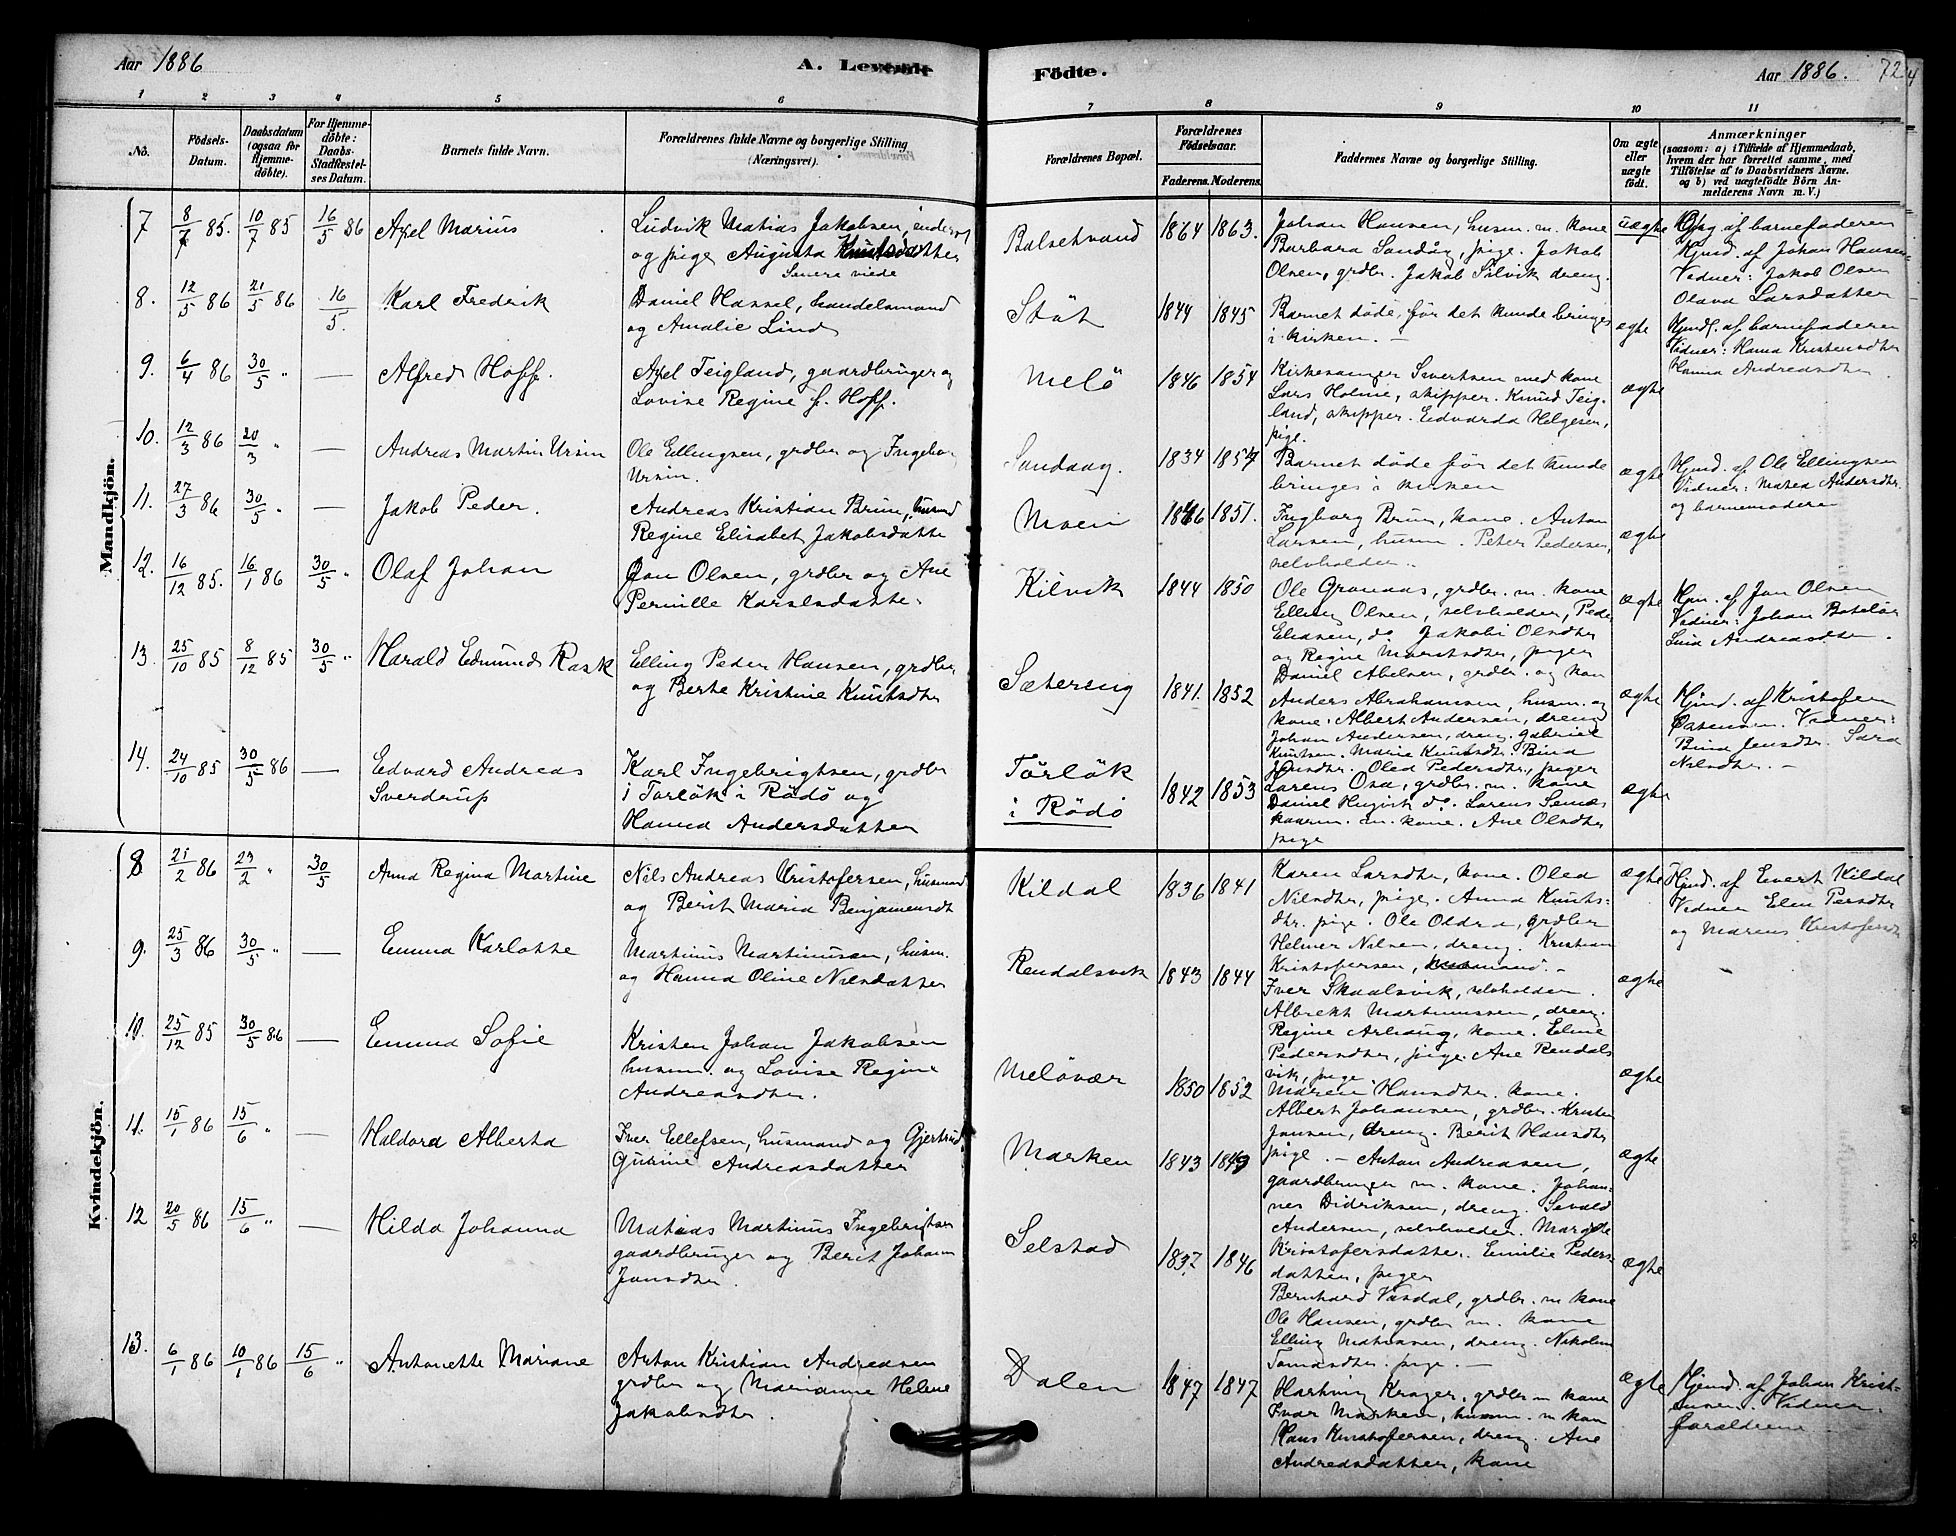 Aar 1886
A. Levende
Födte.
Aar 1886.
72
1 2 3 4 5 6 7 8 9 10 11
No.
Födsels-Datum.
Daabsdatum (ogsaa for Hjemme-döbte).
For Hjemme-döbte: Daabs-Stadfæstel-ses Datum.
Barnets fulde Navn.
Forældrenes fulde Navne og borgerlige Stilling (Næringsvei).
Forældrenes Bopæl.
Forældrenes Födselsaar.
Faderens. Moderens.
Faddernes Navne og borgerlige Stilling.
Om ægte eller uægte födt.
Anmærkninger
(saasom: a) i Tilfælde af Hjemmedaab, hvem der har forrettet samme, med Tilföielse af to Daabsvidners Navne. og b) ved uægtefödte Börn Anmelderens Navn m. V.)
Mandkjön.
7 8/7 85. 10/7 85 16/5 86 Axel Marius
Ludvik Matias Jakobsen,
og pige Augusta
Balsetvand 1864 1863.
Johan Hansen, husm. m. kone
Barbara Sandåg, pige. Jakob
Olsen, grdbr. Jakob Silvik dreng.
uægte
af barnefaderen
Hjmd. af Johan Hansen
Vidner: Jakob Olsen
Olava Larsdatter
8. 12/5 86 21/5 86 16/5. Karl Fredrik
Daniel Hassel, handelsmand
og Amalie Lind
Stöt 1844 1845
Barnet döde, för det kunde bringes
i kirken. —
ægte
Hjmd. af barnefaderen
Vidner: Hanna Kristensdtr
Hanna Andreasdtr.
9. 6/4 86 30/5 " — Alfred Hoff.
Axel Teigland, gaardbruger og
Lovise Regine f. Hoff.
Melö 1846 1854
Kirkesanger Sivertsen med kone
Lars Holme, skipper. Knud Teig-
land, skipper. Edvarda Helgesen,
pige.
ægte
10. 12/3 86 20/3 " — Andreas Martin Ursin
Ole Ellingsen, grdbr og Ingebor
Ursin.
Sandaag. 1834 1857
Barnet döde för det kunde
bringes i kirken
ægte
Hjmd. af Ole Ellingsen
Vidner: Matea Andersdtr.
og barnemoderen
11. 27/3 86 30/5 " — Jakob Peder.
Andreas Kristian Brun, husmd
Regine Elisabet Jakobsdatte
Moen 1846 1851.
Ingborg Brun, kone. Anton
Larsen, husm. Peter Pedersen,
selvholder.
ægte
12. 16/12 85. 16/1 86 30/5 " Olaf Johan
Jon Olsen, grdbr og Ane
Pernille Karelsdatte.
Kilvik 1844 1850
Ole Grönaas, grdbr. m. kone
Elling Olsen, selvholder, Peder
Eliasen, do Jakobi Olsdtr
og Regine Moritsdtr, piger
ægte
Hjm. af Jon Olsen
Vidner: Johan
Lina Andreasdtr.
13. 25/10 85 8/12 85 30/5 " Harald Edmund Rask
Elling Peder Hansen, grdbr.
og Berte Kristine Knutsdtr
Sætereng 1841. 1852
Daniel Abelsen, grdbr. og kon
Anders Abrahamsen, husm. og
kone. Albert Andersen, dreng
Johan Andersen, dreng. Gabriel
Knutsen. Marie Knutsdtr. Bina
Jensdtr. Olea Pedersdtr, piger
ægte
Hjmd. af Kristofer
Vidner:
Bina Jensdtr. Sara
Nilsdtr. —
14. 24/10 85 30/5 86 — Edvard Andreas
Sverdrup
Karl Ingebrigtsen, grdbr
i Torlök i Rödö og
Hanna Andersdatter
Törlök
i Rödö
1842 1853
Lorens Osa, grdbr. m. kone
Daniel do. Lorens
m. kone. Ane Olsdtr
pige
ægte
Kvindekjön.
8 21/2 86 23/2 " 30/5 Anna Regina Martine
Nils Andreas Kristofersen, husmand
og Berit Maria Benjamensdt
Kildal 1836 1841
Karen Larsdtr, kone. Olea
Nilsdtr, pige. Anna Knuts-
dtr. pige. Ole Oldra, grdbr
Helmer Nilsen, dreng. Kristian
Kristofersen,
ægte
Hjmd. af Evert Kildal
Vidner Elen Persdtr
og Marens Kristofersdtr
9. 25/3 86 30/5 " — Emma Karlotte
Martinus Martinussen, husm.
og Hanna Oline Nilsdatter
Rendalsvik 1843 1844
Iver Skaalsvik, selvholder.
Albrekt Martinussen, dreng.
Regine Arhaug, kone. Eline
Pedersdtr, pige. Ane Rendals
vik, pige
ægte
10. 25/12 85 30/5 86 — Emma Sofie
Kristen Johan Jakobsen
husm. og Lovise Regine
Andreasdtr.
Melövær 1850 1852
Maren Hansdtr. kone.
Albert Johansen, grdbr. Kristen
Jonsen, dreng. Berit Hansdtr
pige. —
ægte
11. 15/1 86 15/6 " — Haldora Alberta
Iver Ellefsen, husmand og Gjertrud
Gurine Andreasdatter
Marken 1843 1849
Anton Andreasen,
gaardbruger m. kone. Johan-
nes Didriksen, dreng. Sevald
Andersen, selvholder. Margrete
Kristofersdatter. Emilie Peders-
datter, piger
ægte
12 20/5 86 15/6 " — Hilda Johanna
Matias Martinus Ingebrigtsen
gaardbruger og Berit Johan
Jonsdtr.
Selstad 1837 1846
Bernhard Vasdal, grdbr. m kone
Ole Hansen, grdbr m. kone
Elling Matiassen, dreng. Nikolin
Tomasdtr. pige. —
ægte
13. 6/1 86 10/1 86 15/6 " Antonette Mariane
Anton Kristian Andreasen
grdbr og Marianne Helene
Jakobsdtr.
Dalen 1847 1847
Hartvig Kröger, grdbr m kone
Ivar Marken, husm. m kon
Hans Kristofersen, dreng. Ane
Andreasdatter, kone
ægte
Hjmd. af Johan Krist-
Vidner.
forældrene